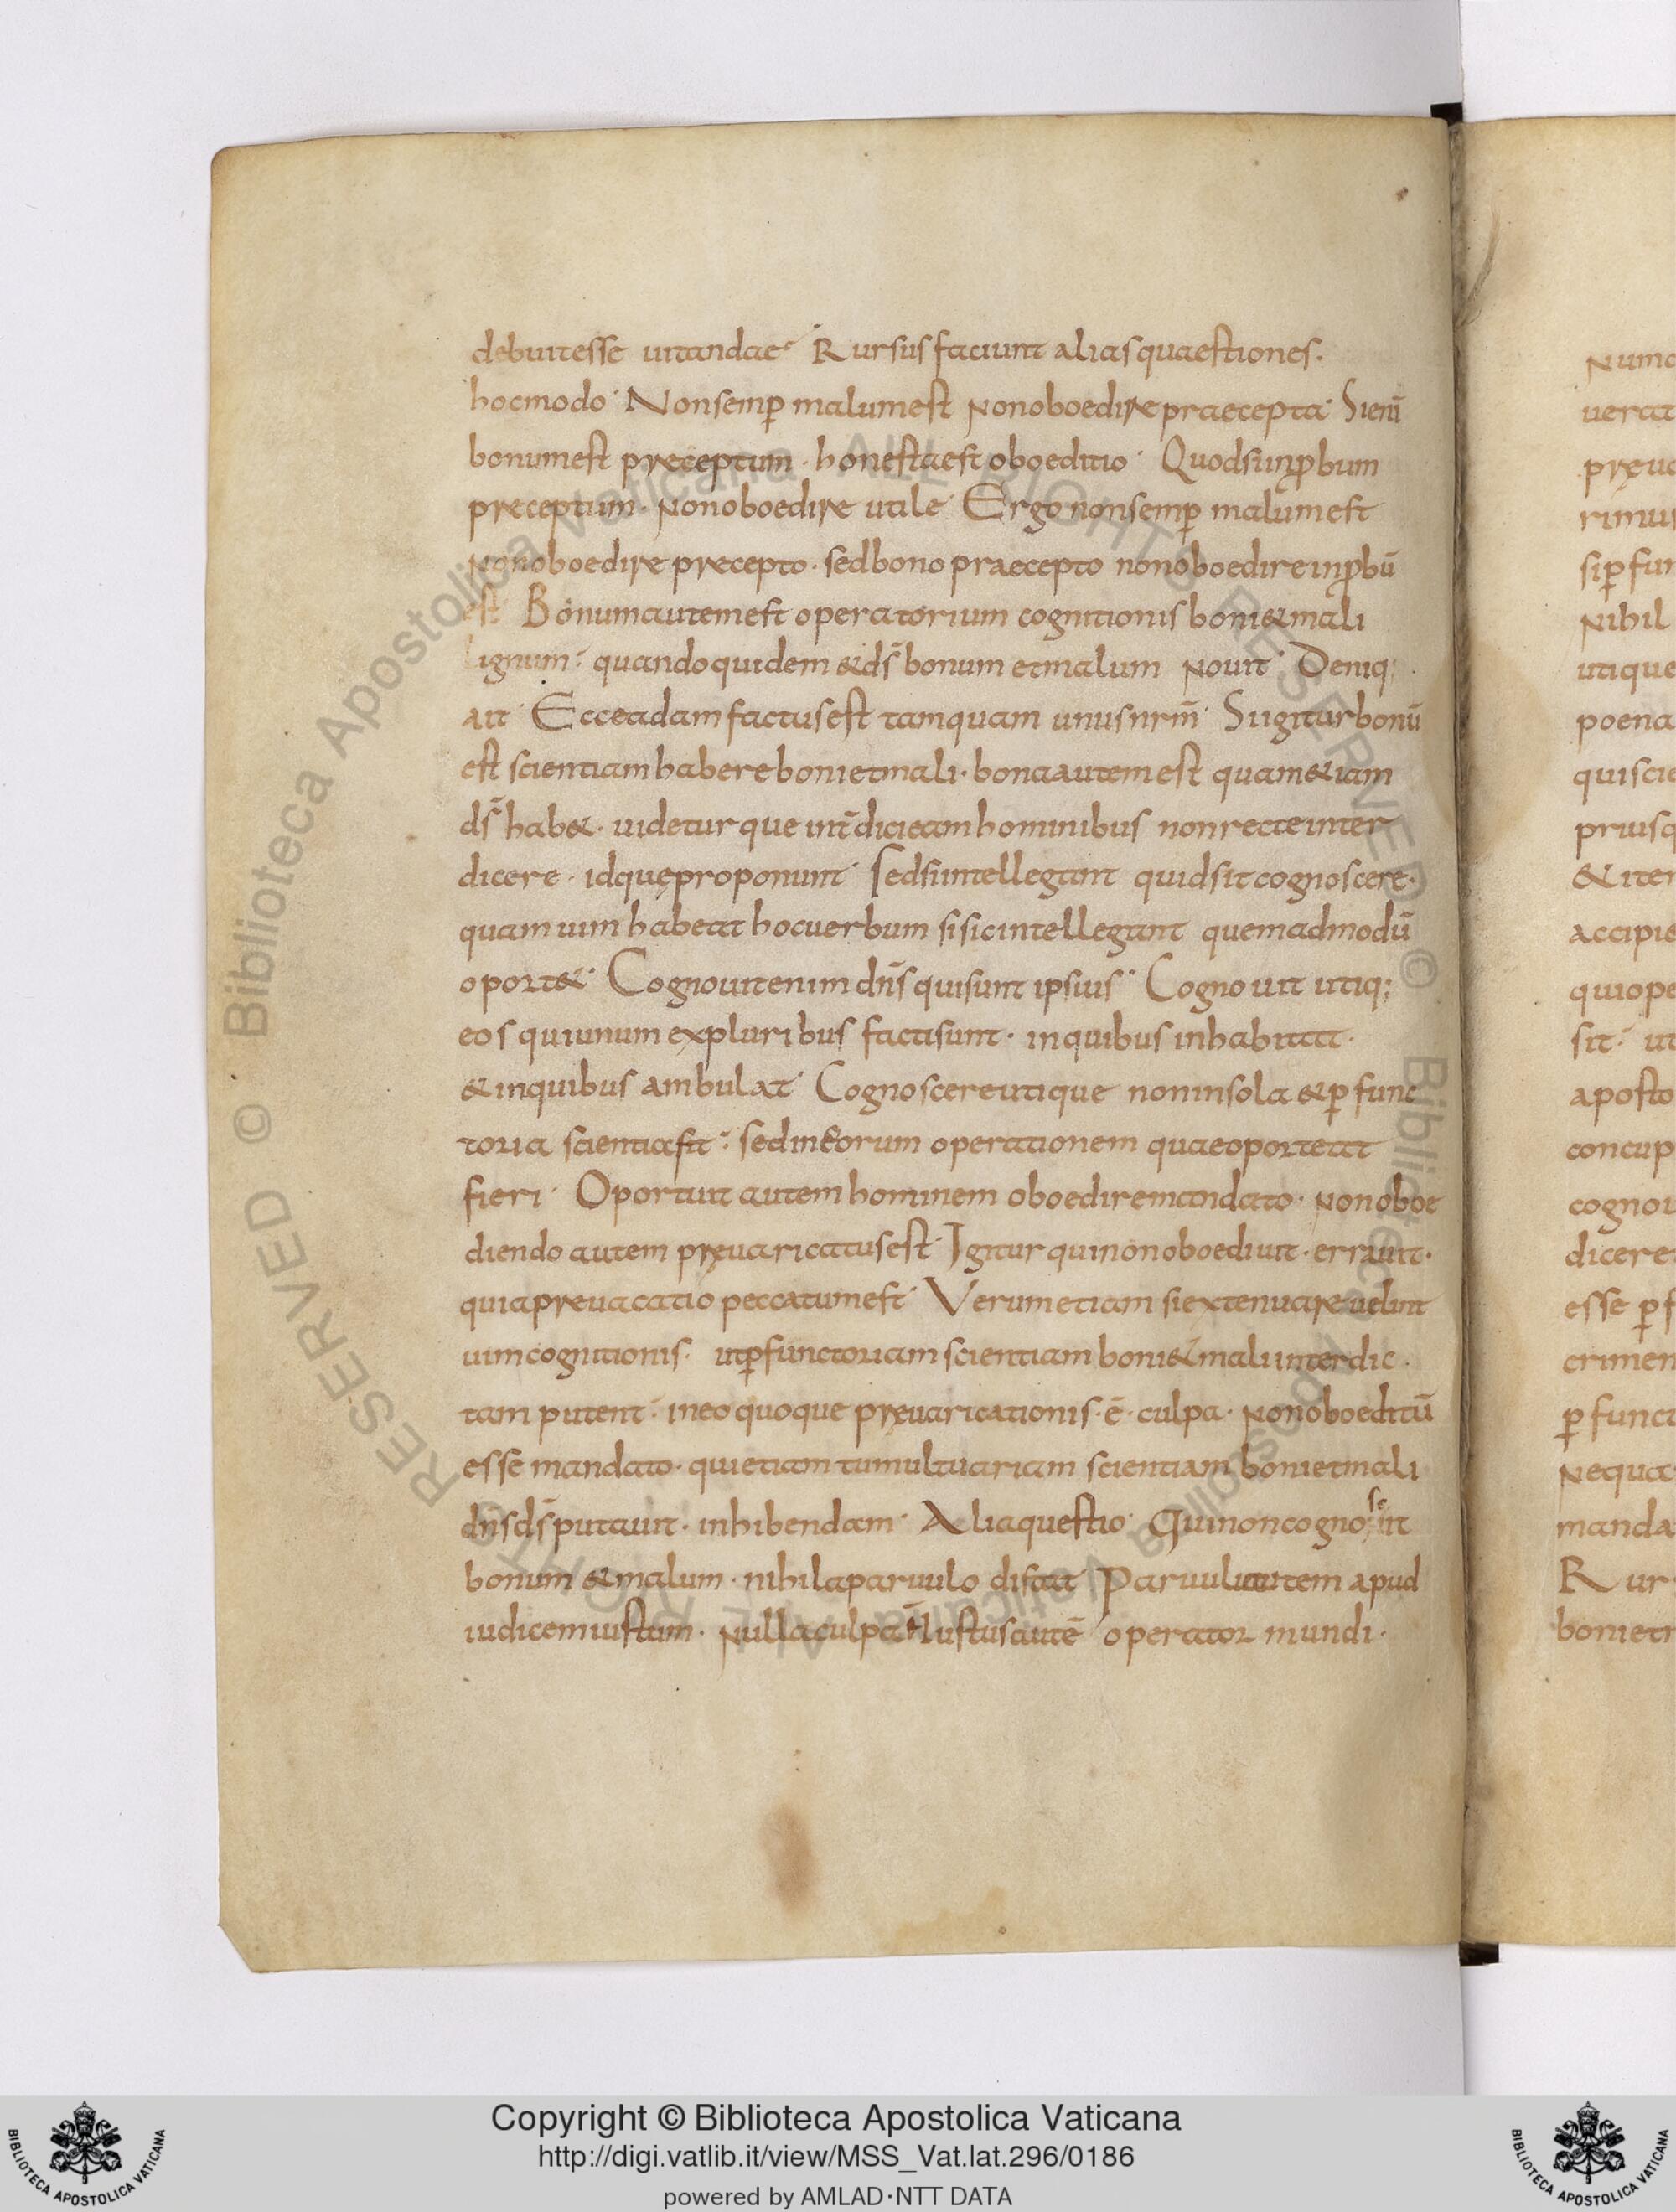 debuit esse uitandae Rursus faciunt alias quaestiones.
hocmodo· Non semp̱ malum est non oboedire praecepta· Si enī
bonum est preceptum· honesta est oboeditio· Quod si inꝓbum
preceptum· non oboedire utile· Ergo non semꝑ malum est
non oboedire precepto· sed bono praecepto non oboedire inꝓbū
est Bonum autem est operatorium cognitionis boni & mali
lignum· quando quidem & ds̄ bonum et malum nouit· Deniq;
ait· Ecce adam factus est tamquam unus nrm̄· Si igitur bonū
est scientiam habere boni et mali· bona autem est quam & iam
ds̄ hab&· uidetur que int̄dici eam hominibus non recte inter
dicere· idquę proponunt· Sed si intellegant quid sit cognoscere·
quam uim habeat hoc uerbum si sic intellegant quemadmodū
oport&· Cognouit enim dn̄s qui sunt ipsius· Cognouit utiq;
eos qui unum ex pluribus facta sunt· in quibus inhabitat·
& in quibus ambulat· Cognoscere utique non in sola & ꝑ func
toria scientia fit· sed in eorum operationem quae oporteat
fieri· Oportuit autem hominem oboedire mandato· non oboe
diendo autem pręuaricatus est· Igitur qui non oboediuit· errauit·
quia preuacatio peccatum est· Verum etiam si extenuare uelint
uim cognitionis· ut ꝑfunctoriam scientiam boni & mali interdic
tam putent· in eo quoque pręuaricationis· ē· culpa· non oboeditū
esse mandato· qui etiam tumultuariam scientiam boni et mali
dn̄s ds̄ putauit· inhibendam· Alia questio· Qui non cognoscit
bonum & malum· nihil a paruulo distat Paruuli autem apud
iudicem iustum· nulla culpa ē Iustus autē operator mundi·
Copyright © Biblioteca Apostolica Vaticana
http://digi.vatlib.it/view/MSS_Vat.lat.296/0186
powered by AMLAD·NTT DATA
BIBLIOTECA APOSTOLICA VATICANA
BIBLIOTECA APOSTOLICA VATICANA